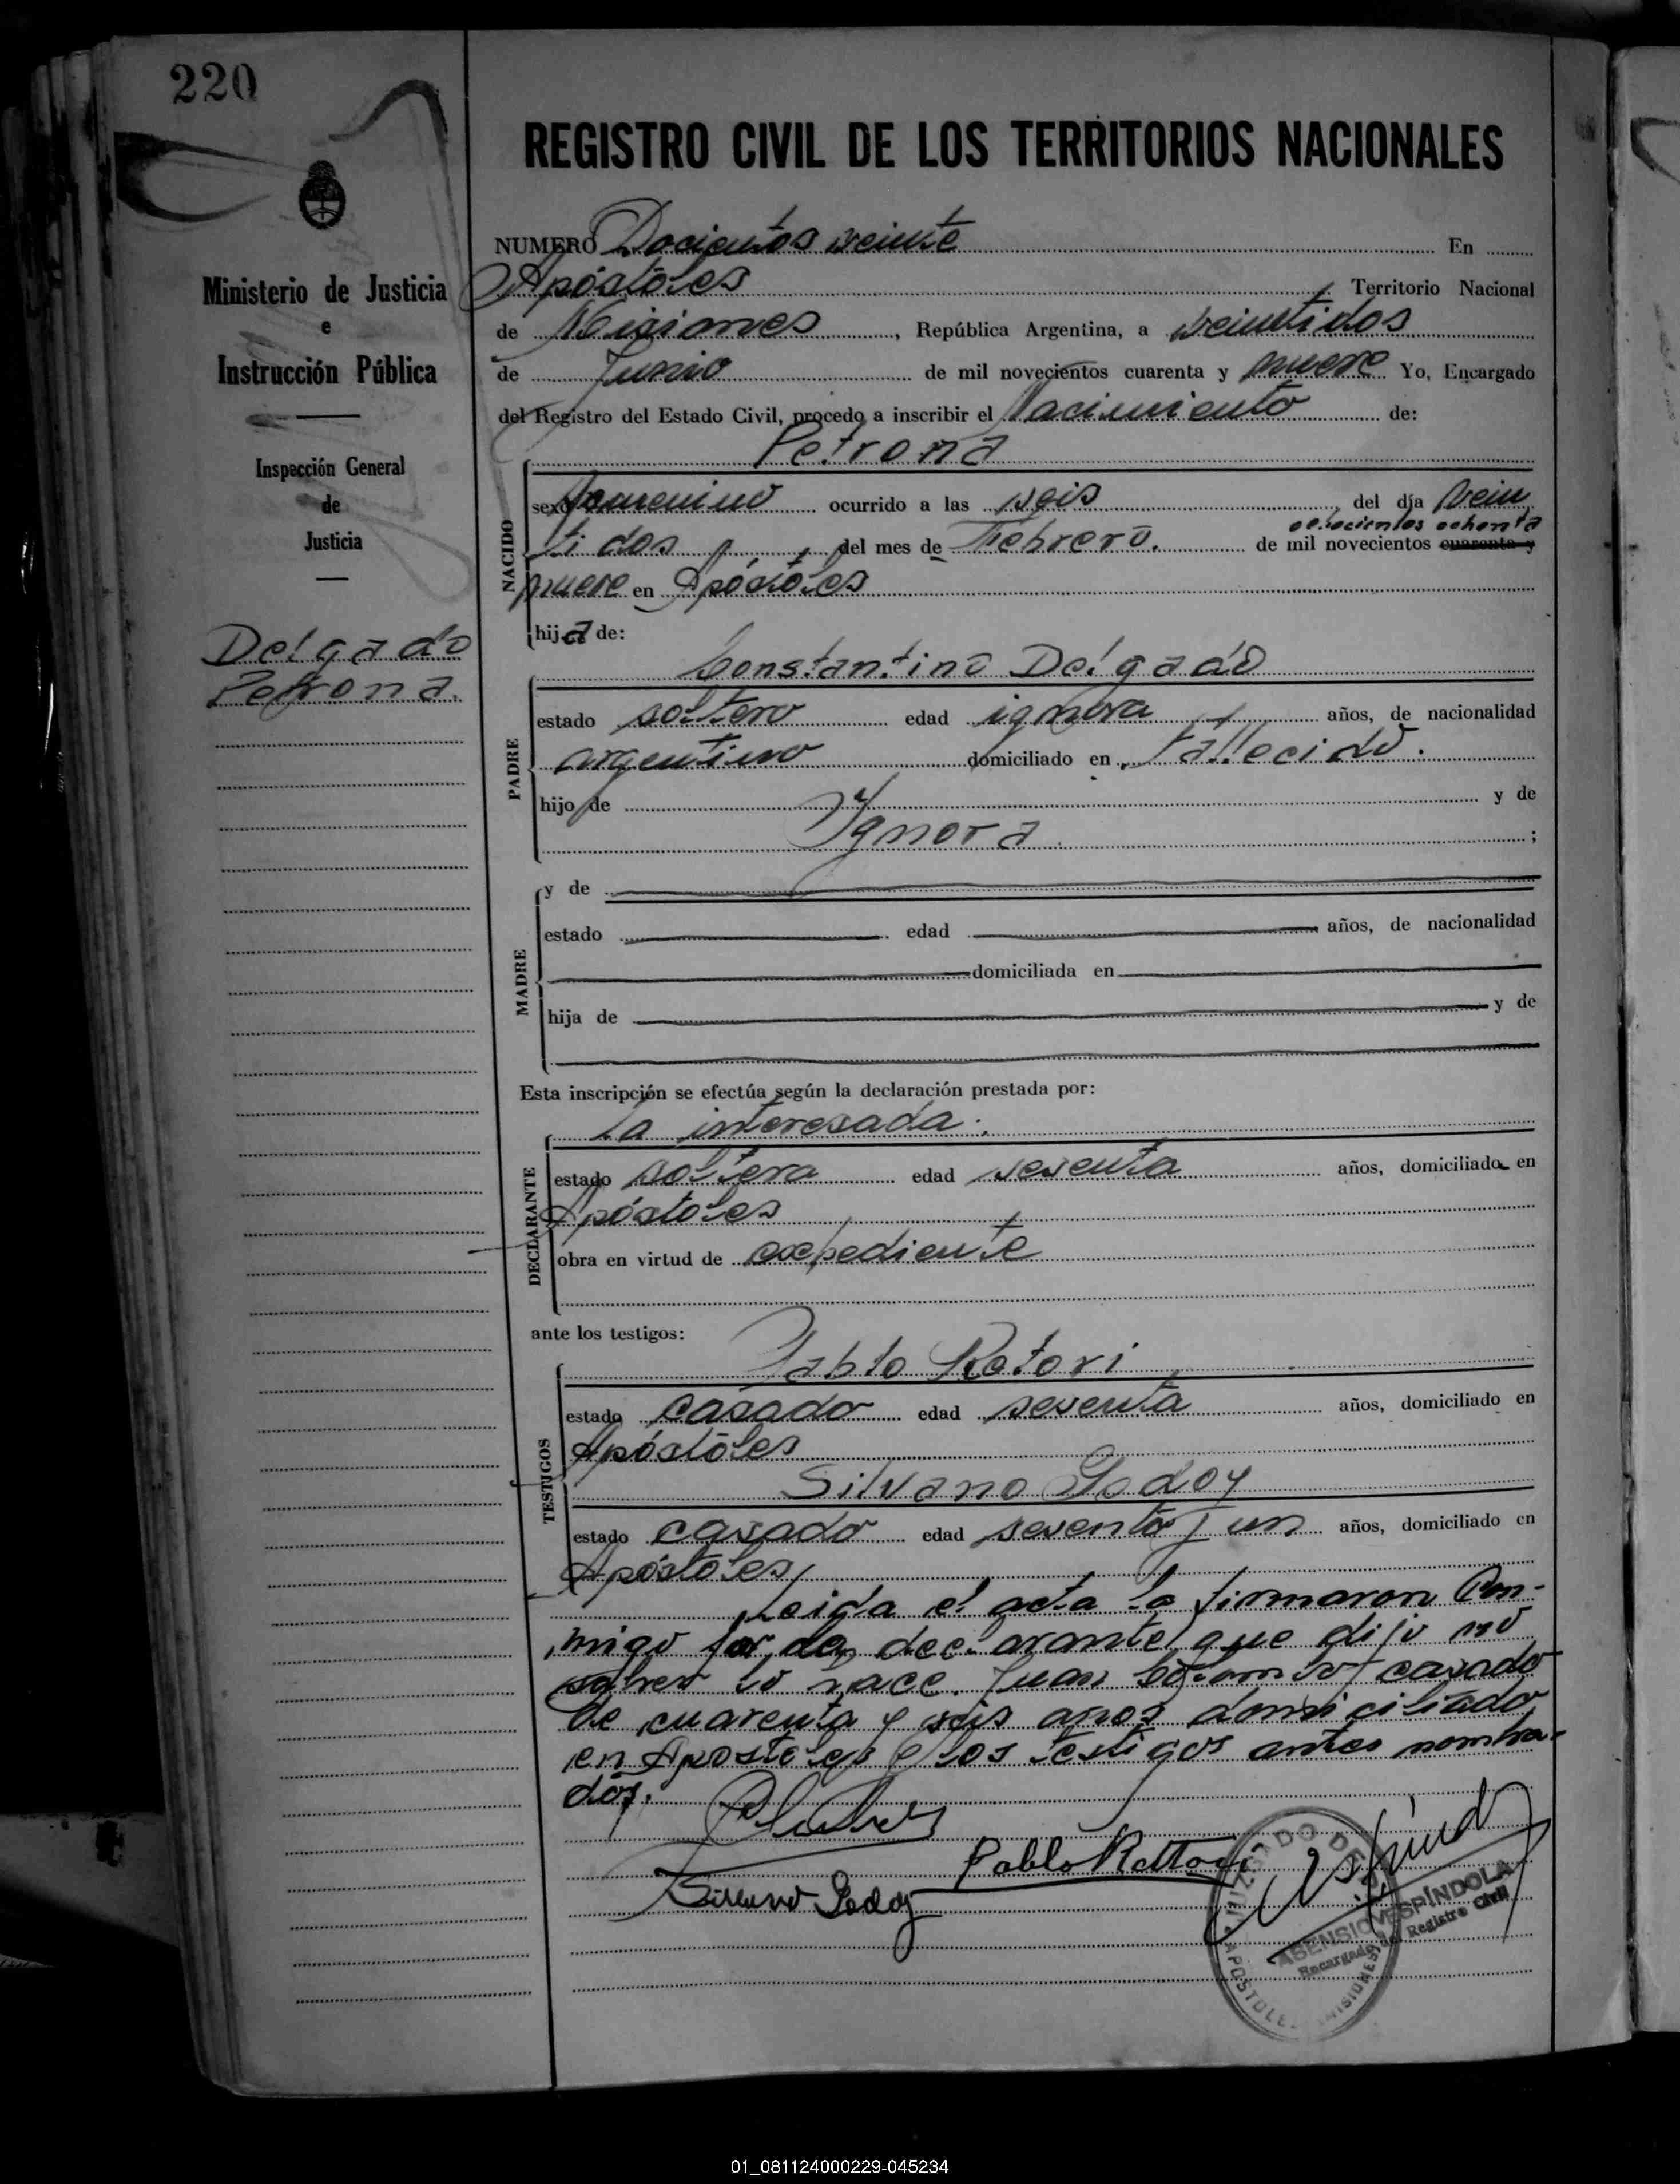 220
REGISTRO CIVIL DE LOS TERRITORIOS NACIONALES
Ministerio de Justicia
e
Instrucción Pública
Inspección General
de
Justicia
Delgado
Petrona.
NUMERO Docientos veinte En
Apóstoles, Territorio Nacional
de Misiones, República Argentina, a veintidos
de Junio de mil novecientos cuarenta y nueve Yo, Encargado
del Registro del Estado Civil, procedo a inscribir el Nacimiento de:
Petrona
NACIDO
sexo femenino ocurrido a las seis, del día vein
ochocientos ochenta
ti dos del mes de Febrero. de mil novecientos cuarenta y
nueve en Apóstoles
hija de:
Constantino Delgado
PADRE
estado soltero edad ignora años, de nacionalidad
argentino domiciliado en fallecido.
hijo de y de
Ygnora ;
MADRE
y de
estado edad años, de nacionalidad
domiciliada en
hija de y de
Esta inscripción se efectúa según la declaración prestada por:
La interesada.
DECLARANTE
estado soltera edad sesenta años, domiciliado en
Apóstoles
obra en virtud de expediente
ante los testigos:
Pablo Retori
TESTIGOS
estado casado edad sesenta años, domiciliado en
Apóstoles
Silvano Godoy
estado casado edad sesenta y un años, domiciliado en
Apóstoles
Leida el acta la firmaron Con-
migo por la declarante que dijo no
saber lo hace Juan casado
de cuarenta y seis anos domiciliado
en Apostoles y los testigos antes nombra-
dos.
Pablo Rettori
Silvano Godoy
JUZGADO DE
APOSTOLES MISIONES
ASENSIO V ESPÍNDOLA
Encargado del Registro Civil
01_081124000229-045234